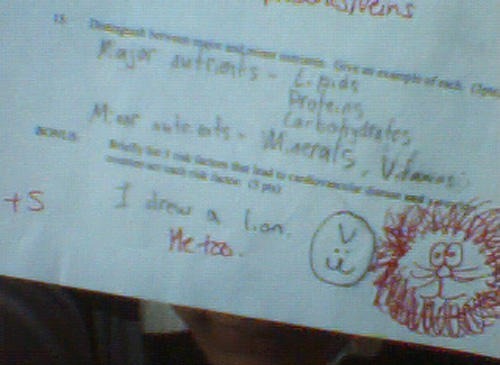 /veins
18. Distinguish between major and minor nutrients. Give an example of each.
Major nutrients - Lipids
Proteins
Carbohydrates
Minor nutrients - Minerals, Vitamins
BONUS: Briefly list 5 risk factors that lead to cardiovascular disease and
counter act each risk factor. (5 pts)
+5
I drew a lion.
Me too.